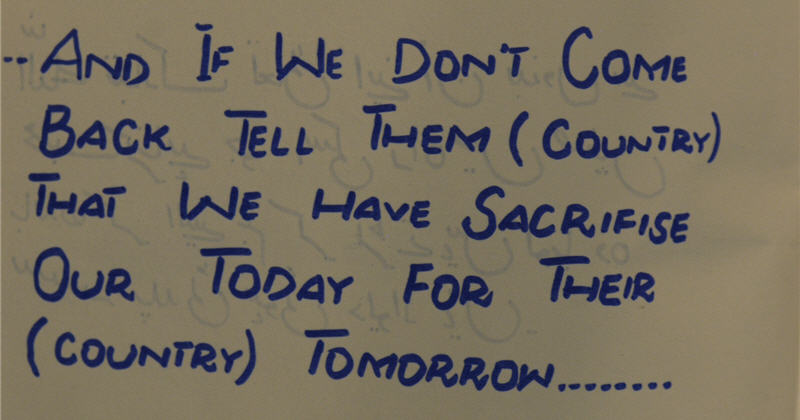 ..AND IF WE DON'T COME
BACK TELL THEM (COUNTRY)
THAT WE HAVE SACRIFISE
OUR TODAY FOR THEIR
(COUNTRY) TOMORROW.........